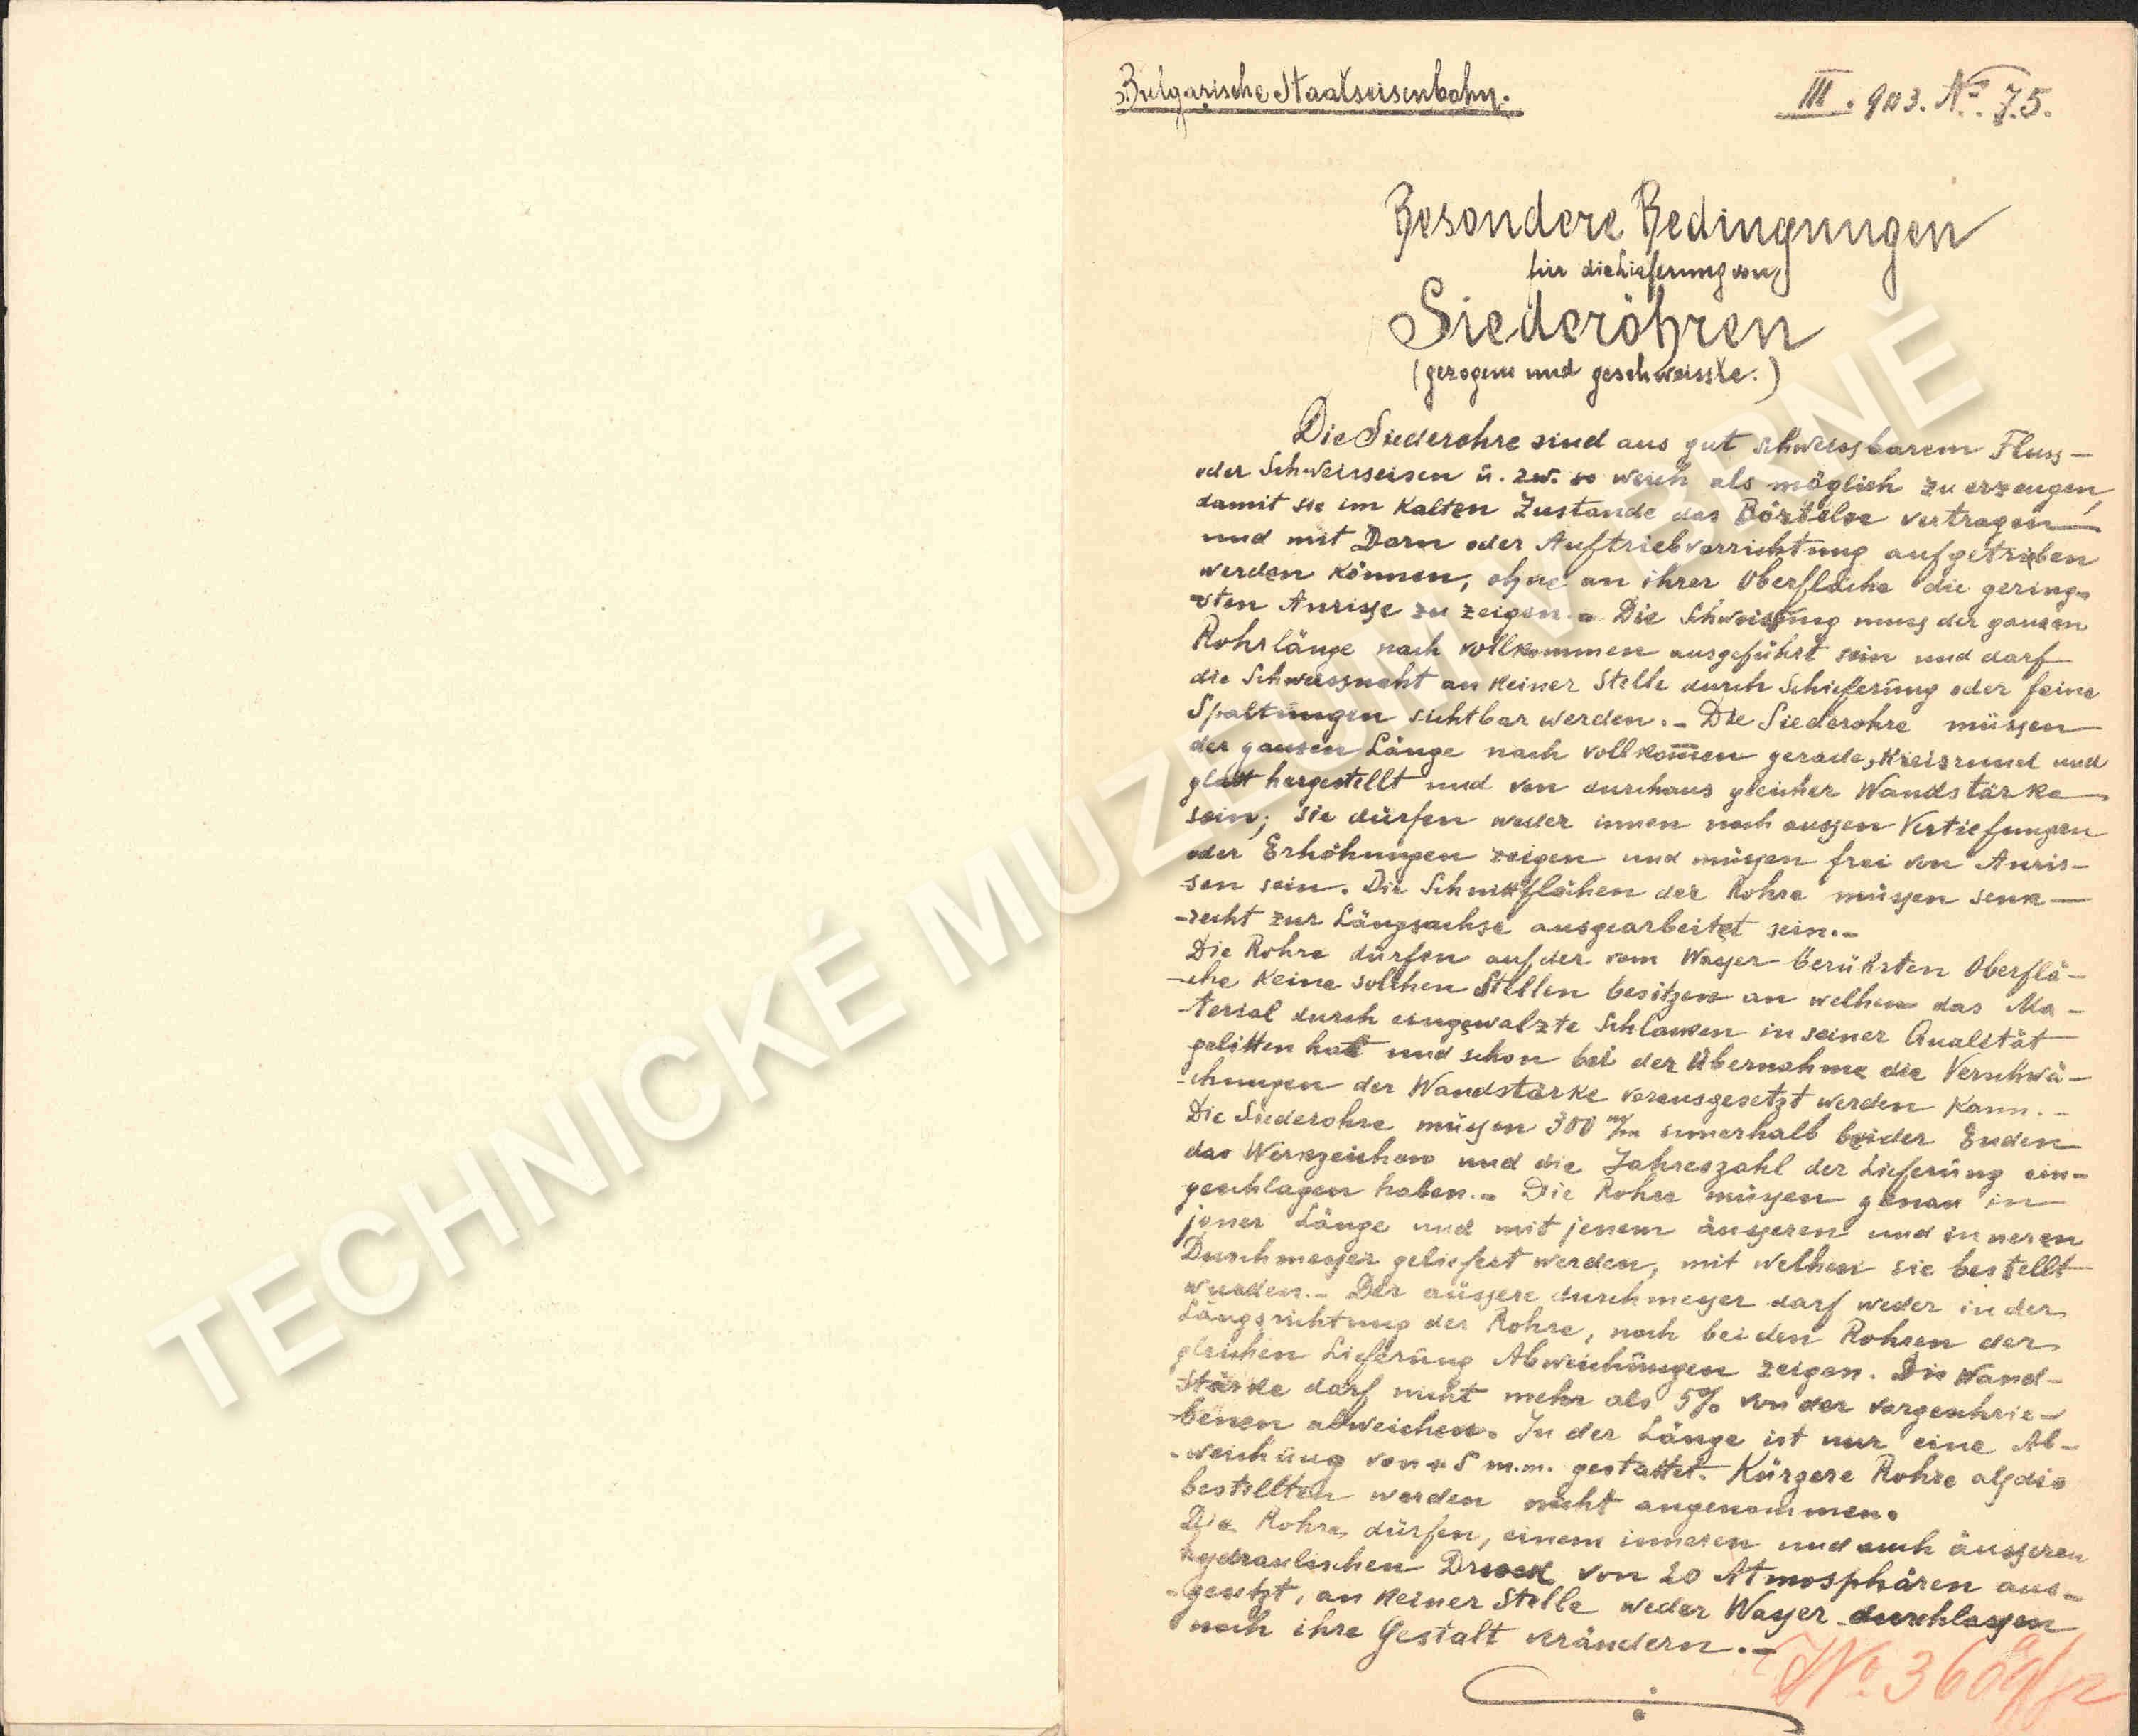 Bulgarische Staatseisenbahn.
III. 903. No. 75.
Besondere Bedingungen
für die Lieferung von
Siederöhren
(gezogene und geschweisste.)
Die Siederohre sind aus gut schweissbarem Fluss-
oder Schweisseisen u. zw. so weich als möglich zu erzeugen,
damit sie im kalten Zustande das Börteln vertragen
und mit Dorn oder Auftriebvorrichtung aufgetrieben
werden können, ohne an ihrer Oberfläche die gering-
sten Anrisse zu zeigen.- Die Schweissung muss der ganzen
Rohrlänge nach vollkommen ausgeführt sein und darf
die Schweissnaht an keiner Stelle durch Schieferung oder feine
Spaltungen sichtbar werden.- Die Siederohre müssen
der ganzen Länge nach vollkom̅en gerade, kreisrund und
glatt hergestellt und von durchaus gleicher Wandstärke
sein; sie dürfen weder innen noch aussen Vertiefungen
oder Erhöhungen zeigen und müssen frei von Anris-
sen sein. Die Schnittflächen der Rohre müssen senk-
-recht zur Längsachse ausgearbeitet sein.-
Die Rohre dürfen auf der vom Wasser berührten Oberflä-
-che keine solchen Stellen besitzen an welhen das Ma-
-terial durch eingewalzte Schlacken in seiner Qualität
gelitten hat und schon bei der Übernahme die Verschwä-
-chungen der Wandstärke vorausgesetzt werden kann.-
Die Siederohre müssen 300 m/m innerhalb beider Enden
das Werkzeichen und die Jahreszahl der Lieferung ein-
geschlagen haben.- Die Rohre müssen genau in
jener Länge und mit jenem äusseren und inneren
Durchmesser geliefert werden, mit welhen sie bestellt
wurden.- Der äussere durchmesser darf weder in der
Längsrichtung der Rohre, noch bei den Rohren der
gleichen Lieferung Abweichungen zeigen. Die Wand-
stärke darf nicht mehr als 5% von der vorgeschrie-
-benen abweichen. In der Länge ist nur eine Ab-
-weichung von + 5 m.m. gestattet. Kürzere Rohre als die
bestellten werden nicht angenommen.
Die Rohre dürfen, einem inneren und auch äusseren
hydraulischen Druck von 20 Atmosphären aus-
-gesetzt, an keiner Stelle weder Wasser durchlassen
noch ihre Gestalt verändern.-
No. 3609
TECHNICKÉ MUZEUM V BRNĚ